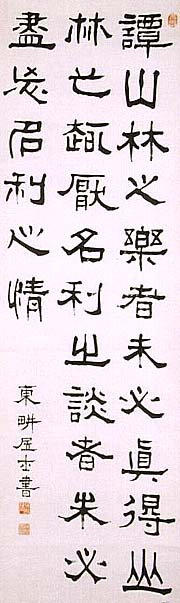 譚山林之樂者未必眞得山
林之趣厭名利之談者未必
盡忘名利之情
東畊居士書